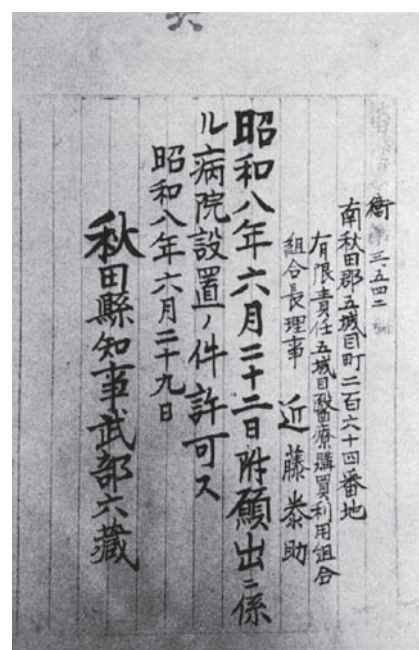 衛 三、五四二 號
南秋田郡五城目町二百六十四番地
有限責任五城目醫療購買利用組合
組合長理事 近藤泰助
昭和八年六月二十二日附願出ニ係
ル病院設置ノ件許可ス
昭和八年六月二十九日
秋田縣知事武部六藏